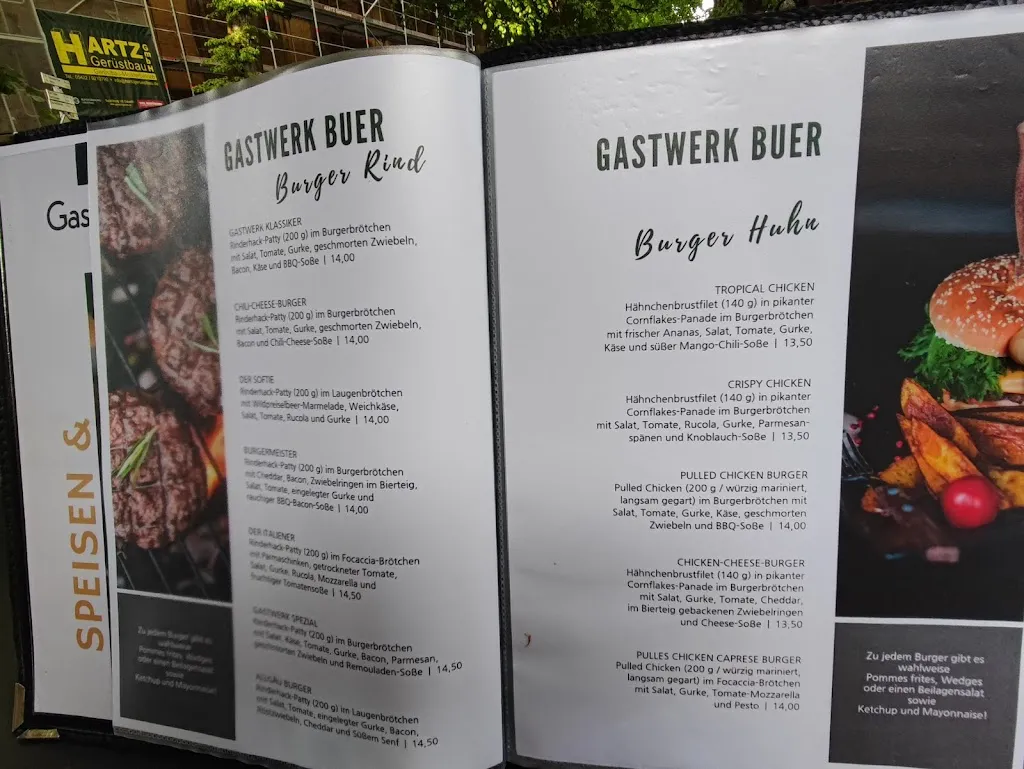 HARTZ GmbH
Gerüstbau
Gas
SPEISEN &
GASTWERK BUER
Burger Rind
GASTWERK KLASSIKER
Rinderhack-Patty (200 g) im Burgerbrötchen
mit Salat, Tomate, Gurke, geschmorten Zwiebeln,
Bacon, Käse und BBQ-Soße | 14,00
CHILI-CHEESE-BURGER
Rinderhack-Patty (200 g) im Burgerbrötchen
mit Salat, Tomate, Gurke, geschmorten Zwiebeln,
Bacon und Chili-Cheese-Soße | 14,00
DER SOFTIE
Rinderhack-Patty (200 g) im Laugenbrötchen
mit Wildpreiselbeer-Marmelade, Weichkäse,
Salat, Tomate, Rucola und Gurke | 14,00
BURGERMEISTER
Rinderhack-Patty (200 g) im Burgerbrötchen
mit Cheddar, Bacon, Zwiebelringen im Bierteig,
Salat, Tomate, eingelegter Gurke und
rauchiger BBQ-Bacon-Soße | 14,00
DER ITALIENER
Rinderhack-Patty (200 g) im Focaccia-Brötchen
mit Parmaschinken, getrockneter Tomate,
Salat, Gurke, Rucola, Mozzarella und
fruchtiger Tomatensoße | 14,50
GASTWERK SPEZIAL
Rinderhack-Patty (200 g) im Burgerbrötchen
mit Salat, Käse, Tomate, Gurke, Bacon, Parmesan,
geschmorten Zwiebeln und Remouladen-Soße | 14,50
ALLGÄU BURGER
Rinderhack-Patty (200 g) im Laugenbrötchen
mit Salat, Tomate, eingelegter Gurke, Bacon,
Röstzwiebeln, Cheddar und Süßem Senf | 14,50
Zu jedem Burger gibt es
wahlweise
Pommes frites, Wedges
oder einen Beilagensalat
sowie
Ketchup und Mayonnaise!
GASTWERK BUER
Burger Huhn
TROPICAL CHICKEN
Hähnchenbrustfilet (140 g) in pikanter
Cornflakes-Panade im Burgerbrötchen
mit frischer Ananas, Salat, Tomate, Gurke,
Käse und süßer Mango-Chili-Soße | 13,50
CRISPY CHICKEN
Hähnchenbrustfilet (140 g) in pikanter
Cornflakes-Panade im Burgerbrötchen
mit Salat, Tomate, Rucola, Gurke, Parmesan-
spänen und Knoblauch-Soße | 13,50
PULLED CHICKEN BURGER
Pulled Chicken (200 g / würzig mariniert,
langsam gegart) im Burgerbrötchen mit
Salat, Tomate, Gurke, Käse, geschmorten
Zwiebeln und BBQ-Soße | 14,00
CHICKEN-CHEESE-BURGER
Hähnchenbrustfilet (140 g) in pikanter
Cornflakes-Panade im Burgerbrötchen
mit Salat, Gurke, Tomate, Cheddar,
im Bierteig gebackenen Zwiebelringen
und Cheese-Soße | 13,50
PULLES CHICKEN CAPRESE BURGER
Pulled Chicken (200 g / würzig mariniert,
langsam gegart) im Focaccia-Brötchen
mit Salat, Gurke, Tomate-Mozzarella
und Pesto | 14,00
Zu jedem Burger gibt es
wahlweise
Pommes frites, Wedges
oder einen Beilagensalat
sowie
Ketchup und Mayonnaise!